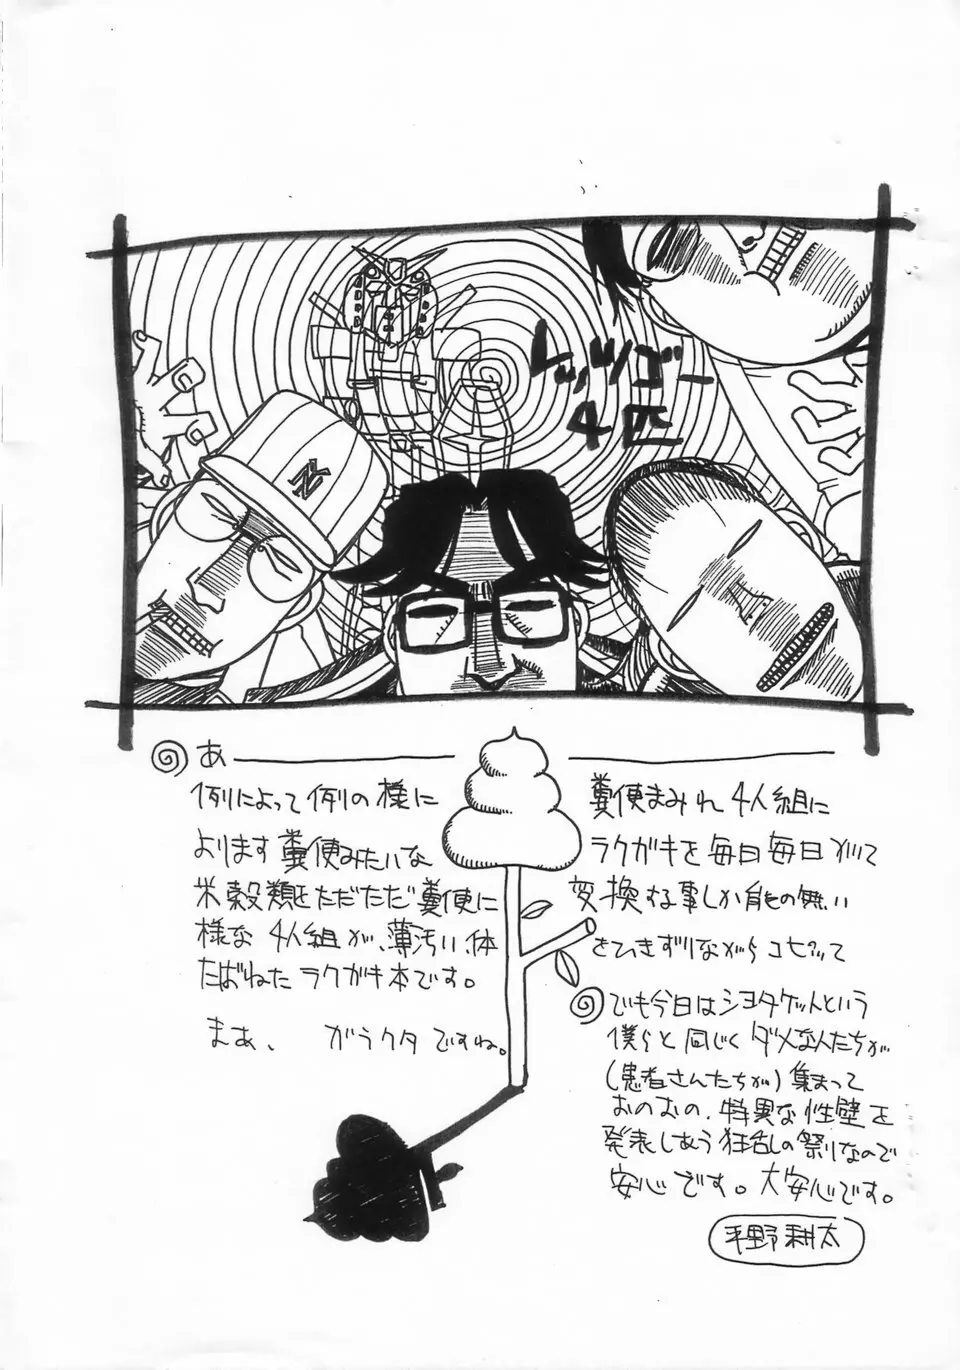 レッツゴー
4匹
NY
あ
例によって例の様に 糞便まみれ4人組に
よります糞便みたいな ラクガキを毎日毎日
米穀類をただただ糞便に 変換する事しか能の無い
様な 4人組が、薄汚い体 をひきずりながらコピッて
たばねたラクガキ本です。
まあ、 ガラクタですね。
でも今日はショタケットという
僕らと同じくダメな人たちが
(患者さんたちが)集まって
おのおの、特異な性壁を
発表しあう狂乱の祭りなので
安心です。大安心です。
平野耕太